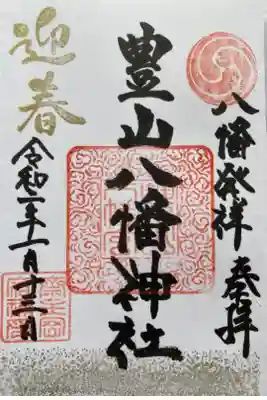 八幡発祥 奉拝
豊山八幡神社
迎春
令和二年一月十三日